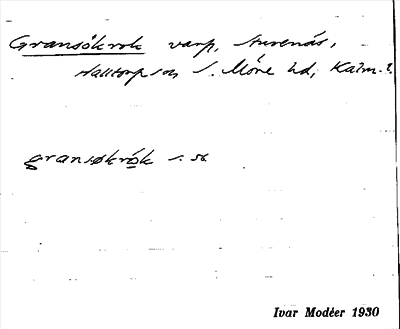 Gransökrok varp, Stuvenäs,
Halltorp sn S. Möre hd, Kalm. l.
gransøkrök s. 56
Ivar Modéer 1930